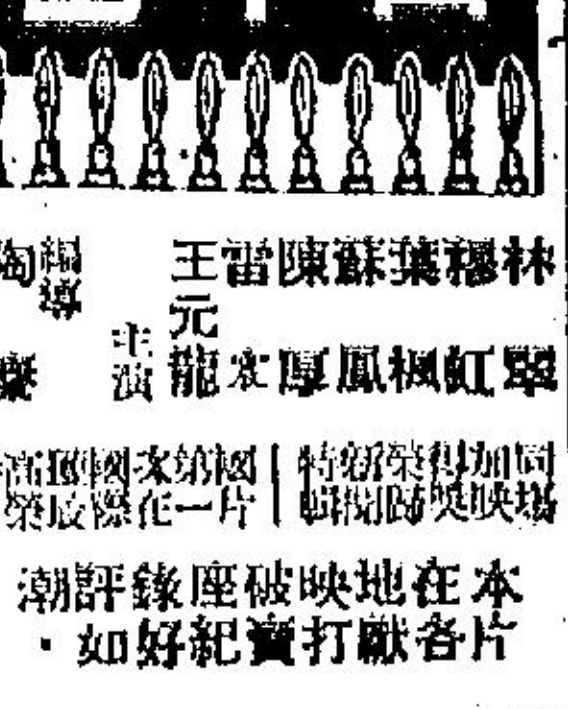 林翠
穆虹
葉楓
蘇鳳
陳厚
雷
王元龍
主演
編導
陶
同場加映得獎榮歸新聞特輯
國片第一次在國際
本片在各地獻映打破賣座紀錄好評如潮・